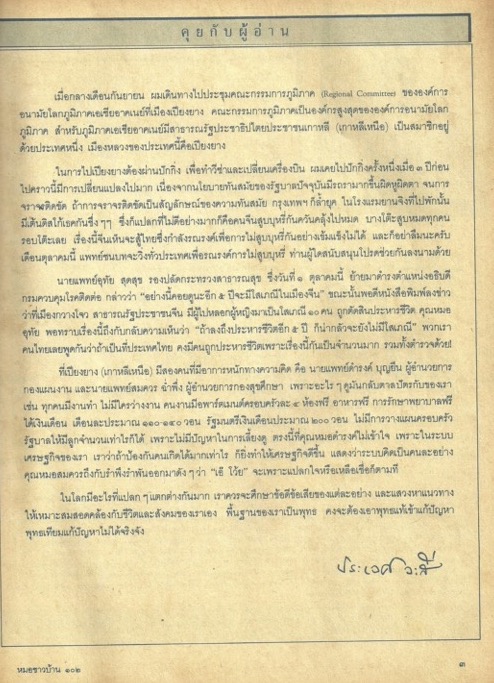 คุยกับผู้อ่าน
เมื่อกลางเดือนกันยายน ผมเดินทางไปประชุมคณะกรรมการภูมิภาค (Regional Committee) ขององค์การ
อนามัยโลกภูมิภาคเอเซียอาคเนย์ที่เมืองเปียงยาง คณะกรรมการภูมิภาคเป็นองค์กรสูงสุดขององค์การอนามัยโลก
ภูมิภาค สำหรับภูมิภาคเอเซียอาคเนย์มีสาธารณรัฐประชาธิปไตยประชาชนเกาหลี (เกาหลีเหนือ) เป็นสมาชิกอยู่
ด้วยประเทศหนึ่ง เมืองหลวงของประเทศนี้คือเปียงยาง
ในการไปเปียงยางต้องผ่านปักกิ่ง เพื่อทำวีซ่าและเปลี่ยนเครื่องบิน ผมเคยไปปักกิ่งครั้งหนึ่งเมื่อ ๓ ปีก่อน
ไปคราวนี้มีการเปลี่ยนแปลงไปมาก เนื่องจากนโยบายทันสมัยของรัฐบาลปัจจุบันมีรถรามากขึ้นผิดหูผิดตา จนการ
จราจรติดขัด ถ้าการจราจรติดขัดเป็นสัญลักษณ์ของความทันสมัย กรุงเทพฯ ก็ล้ำยุค ในโรงแรมยานจิงที่ไปพักนั้น
มีเต้นดิสโก้เธคกันซึ่งๆๆ ซึ่งก็แปลกที่ไม่ดีอย่างมากก็คือคนจีนสูบบุหรี่กันควันคลุ้งไปหมด บางโต๊ะสูบหมดทุกคน
รอบโต๊ะเลย เรื่องนี้จีนเห็นจะสู้ไทยซึ่งกำลังรณรงค์เพื่อการไม่สูบบุหรี่กันอย่างเข้มแข็งไม่ได้ และก็อย่าลืมนะครับ
เดือนตุลาคมนี้ แพทย์ชนบทจะวิ่งทั่วประเทศเพื่อรณรงค์การไม่สูบบุหรี่ ท่านผู้ใดสนับสนุนโปรดช่วยกันลงนามด้วย
นายแพทย์อุทัย สุดสุข รองปลัดกระทรวงสาธารณสุข ซึ่งวันที่ ๑ ตุลาคมนี้ ย้ายมาดำรงตำแหน่งอธิบดี
กรมควบคุมโรคติดต่อ กล่าวว่า “อย่างนี้คอยดูนะอีก ๕ ปีจะมีโสเภณีในเมืองจีน” ขณะนั้นพอดีหนังสือพิมพ์ลงข่าว
ว่าที่เมืองกวางโจว สาธารณรัฐประชาชนจีน มีผู้ไปหลอกผู้หญิงมาเป็นโสเภณี ๑๐ คน ถูกตัดสินประหารชีวิต คุณหมอ
อุทัย พอทราบเรื่องนี้ถึงกับลบความเห็นว่า “ถ้าลงถึงประหารชีวิตอีก ๕ ปี ก็น่ากลัวจะยังไม่มีโสเภณี” พวกเรา
คนไทยเลยพูดกันว่าถ้าเป็นที่ประเทศไทย คงมีคนถูกประหารชีวิตเพราะเรื่องนี้กันเป็นจำนวนมาก รวมทั้งตำรวจด้วย!
ที่เปียงยาง (เกาหลีเหนือ) มีสองคนที่มีอาการหนักทางความคิด คือ นายแพทย์ดำรงค์ บุญยืน ผู้อำนวยการ
กองแผนงาน และนายแพทย์สมควร ฉ่ำพึ่ง ผู้อำนวยการกองสุขศึกษา เพราะอะไร ๆ ดูมันกลับตาลปัตรกับของเรา
เช่น ทุกคนมีงานทำ ไม่มีใครว่างงาน คนงานมีอพาร์ตเมนต์ครอบครัวละ ๔ ห้องฟรี อาหารฟรี การรักษาพยาบาลฟรี
ได้เงินเดือน เดือนละประมาณ ๑๑๐-๑๔๐ วอน รัฐมนตรีเงินเดือนประมาณ ๒๐๐ วอน ไม่มีการวางแผนครอบครัว
รัฐบาลให้มีลูกจำนวนเท่าไรก็ได้ เพราะไม่มีปัญหาในการเลี้ยงดู ตรงนี้ที่คุณหมอดำรงค์ไม่เข้าใจ เพราะในระบบ
เศรษฐกิจของเรา เราว่าถ้าป้องกันคนเกิดได้มากเท่าไร ก็ยิ่งทำให้เศรษฐกิจดีขึ้น แสดงว่าระบบคิดเป็นคนละอย่าง
คุณหมอสมควรถึงกับรำพึงรำพันออกมาดังๆ ว่า “เอ๊ โว้ย” จะเพราะแปลกใจหรือเหลือเชื่อก็ตามที
ในโลกมีอะไรที่แปลกๆแตกต่างกันมาก เราควรจะศึกษาข้อดีข้อเสียของแต่ละอย่าง และแสวงหาแนวทาง
ให้เหมาะสมสอดคล้องกับชีวิตและสังคมของเราเอง พื้นฐานของเราเป็นพุทธ คงจะต้องเอาพุทธแท้เข้าแก้ปัญหา
พุทธเทียมแก้ปัญหาไม่ได้จริงจัง
ประเวศ วะสี
หมอชาวบ้าน ๑๐๒
๓